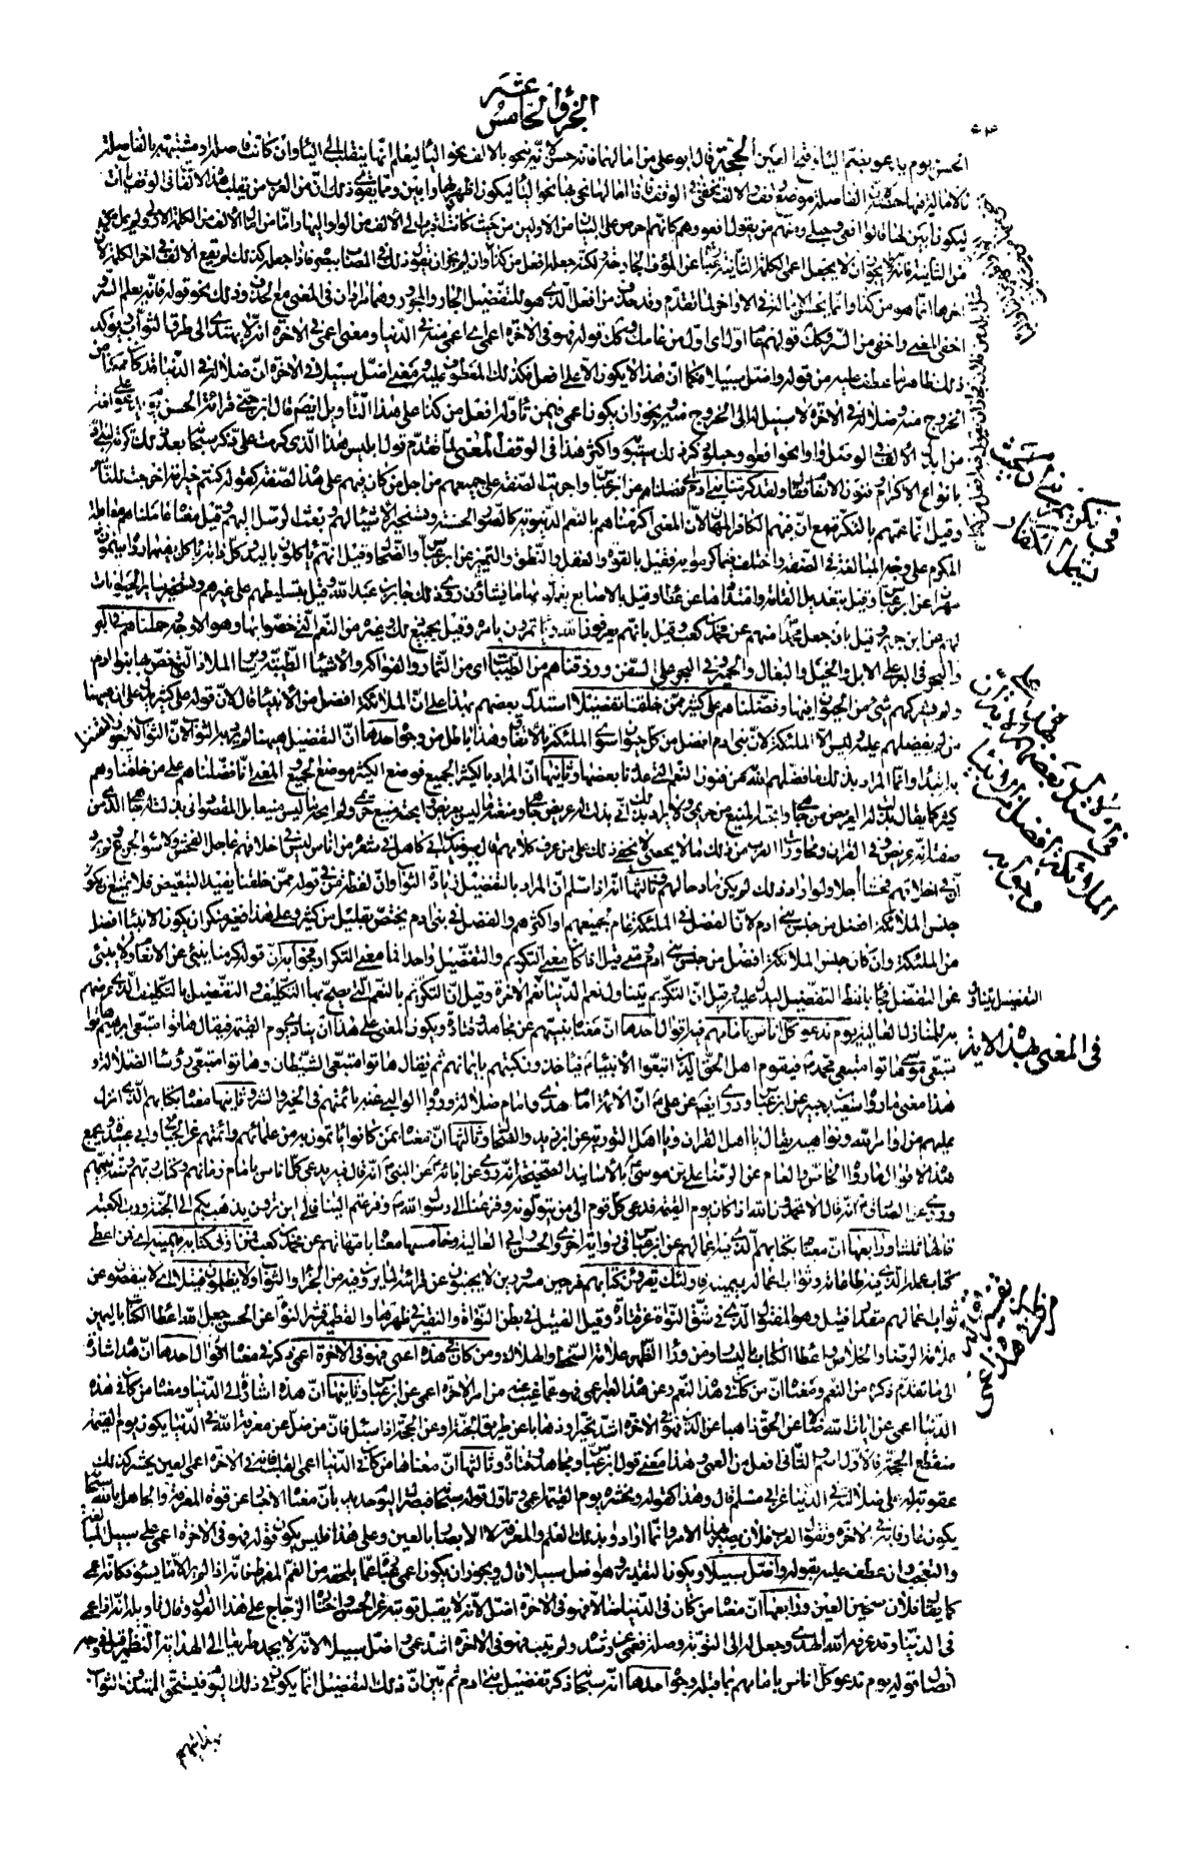 الجزؤ الخامس عشر
الحسن يوم يدعو بضم الياء وفتح العين الحجة قال ابو على من امالهما فانه حسن لانه ينحو بالالف نحو الياء ليعلم انها ينقلب الى الياء وان كانت فاصلة او مشتبهة بالفاصلة
فالامالة فيها حسنة لان الفاصلة موضع وقف والالف تخفى فى الوقف فاذا امالها نحى بها نحو الياء ليكون اظهر لها وابين ومما يقوى ذلك ان من العرب من يقلب هذه الالفات فى الوقف ياءات
ليكون ابين لها قالوا افعى وحبلى ومنهم من يقول افعو وهم كانهم احرص على البيان من الاولين من حيث كانت اقرب الى الالف من الواو اليها واما من امال الالف من الكلمة الاولى ولم يمل من
من الثانية فانه يجوز ان لا يجعل اعمى الكلمة الثانية عبارة عن المؤف الجارحة ولكنه جعله افعل من كذا وان لم يجز ان يقول ذلك فى المصاب ببصره فاذا جعله كذلك لم تقع الالف فى اخر الكلمة لان
اخرها انما هو من كذا وانما تحسن الامالة فى الاواخر لما تقدم وقد حذف من افعل الذى هو للتفضيل الجار والمجرور وهما مرادان فى المعنى مع الحذف وذلك نحو قوله فانه يعلم السر و
اخفى المعنى واخفى من السر وكذلك قولهم عام اول اى اول من عامك وكذلك قوله فهو فى الاخرة اعمى اى اعمى منه فى الدنيا ومعنى اعمى فى الاخرة انه لا يهتدى الى طرق الثواب ويؤكد
ذلك ظاهر ما عطف عليه من قوله واضل سبيلا فكما ان هذا لا يكون الا على افعل فكذلك المعطوف عليه ومعنى اضل سبيلا فى الاخرة ان ضلاله فى الدنيا قد كان ممكنا من
الخروج منه وضلاله فى الاخرة لا سبيل له الى الخروج منه ويجوز ان يكون اعمى فيمن تاوله افعل من كذا على هذا التاويل ايضا قال ابن جنى قرائة الحسن يدعو على لغة
من ابدل الالف فى الوصل واوا نحو افعو وحبلو ذكر ذلك سيبويه واكثر هذا فى الوقف المعنى لما تقدم قول ابليس هذا الذى كرمت على ذكر سبحانه بعد ذلك تكرمته لبنى ادم
بانواع الاكرام وفنون الانعام فقال ولقد كرمنا بنى ادم اى فضلناهم عن ابن عباس واجريت الصفة على جميعهم من اجل من كان فيهم على هذه الصفة كقوله كنتم خير امة اخرجت للناس
وقيل انما عمهم بالتكرمة مع ان فيهم الكافر المهان لان المعنى اكرمناهم بالنعم الدنيوية كالصور الحسنة وتسخير الاشياء لهم وبعث الرسل اليهم وقيل معناه عاملناهم معاملة
المكرم على وجه المبالغة فى الصفة واختلف فيما كرموا به فقيل بالقوة والعقل والنطق والتمييز عن ابن عباس والضحاك وقيل انهم ياكلون باليد وكل دابة تاكل بفمها رواه ميمون بن
مهران عن ابن عباس وقيل بتعديل القامة وامتدادها عن عطا وقيل بالاصابع يعملون بها ما يشاؤن روى ذلك جابر بن عبد الله وقيل بتسليطهم على غيرهم وتسخير سائر الحيوانات
لهم عن ابن جرير وقيل بان جعل محمدا منهم عن محمد بن كعب وقيل بانهم يعرفون الله وياتمرون بامره وقيل بجميع ذلك وغيره من النعم التى خصوا بها وهو الاوجه وحملناهم فى البر
والبحر فى البر على الابل والخيل والبغال والحمير وفى البحر على السفن ورزقناهم من الطيبات اى من الثمار والفواكه والاشياء الطيبة وسائر الملاذ التى خص بها بنو ادم
ولم يشركهم شئ من الحيوان فيها وفضلناهم على كثير ممن خلقنا تفضيلا استدل بعضهم بهذا على ان الملائكة افضل من الانبياء قال لان قوله على كثير يدل على ان ههنا
من لم يفضلهم عليه وليس الا الملائكة لان بنى ادم افضل من كل حيوان سوى الملئكة بالاتفاق وهذا باطل من وجوه احدها ان التفضيل ههنا لم يرد به الثواب لان الثواب لا يجوز التفضيل
به ابتداء وانما المراد بذلك ما فضلهم الله به من فنون النعم التى عددنا بعضها وثانيها ان المراد بالكثير الجميع فوضع الكثير موضع الجميع والمعنى انا فضلناهم على من خلقنا وهم
كثير كما يقال بذلت له العريض من جاهى وابحته المنيع من حريمى ولا يراد بذلك انى بذلت له عريض جاهى ومنعته ما ليس بعريض وابحته منيع حريمى ولم ابحه ما ليس منيعا بل المقصود انى بذلت له جاهى الذى من
صفته انه عريض وفى القران ومحاورات العرب من ذلك ما لا يحصى ولا يخفى ذلك على من عرف كلامهم قال سويد بن ابى كاهل فى معشره من اناس ليس فى اخلاقهم عاجل الفحش ولا سوء الجزع ولم يرد
ان فى اخلاقهم فحشا اجلا ولو اراد ذلك لم يكن مادحا لهم وثالثها انه اذا سلم ان المراد بالتفضيل زيادة الثواب وان لفظة من فى قوله ممن خلقنا يفيد التبعيض فلا يمتنع ان يكون
جنس الملائكة افضل من جنس بنى ادم لان الفضل فى الملئكة عام لجميعهم او اكثرهم والفضل فى بنى ادم يختص بقليل من كثير وعلى هذا فغير منكر ان يكون الانبياء افضل
من الملئكة وان كان جنس الملائكة افضل من جنس بنى ادم ومتى قيل اذا كان معنى التكريم والتفضيل واحدا فما معنى التكرار فجوابه ان قوله كرمنا ينبئ عن الانعام ولا ينبئ
عن التفضل فجاء بلفظ التفضيل ليدل عليه وقيل ان التكريم يتناول نعم الدنيا والتفضيل يتناول نعم الاخرة وقيل ان التكريم بالنعم التى يصح بها التكليف والتفضيل بالتكليف الذى عرضهم
به للمنازل العالية يوم ندعو كل اناس بامامهم فيه اقوال احدها ان معناه بنبيهم عن مجاهد وقتادة ويكون المعنى على هذا ان ينادى يوم القيمة فيقال هاتوا متبعى ابرهيم هاتوا
متبعى موسى هاتوا متبعى محمد فيقوم اهل الحق الذين اتبعوا الانبياء فياخذون كتبهم بايمانهم ثم يقال هاتوا متبعى الشيطان وهاتوا متبعى رؤساء الضلالة و
هذا معنى ما رواه سعيد بن جبير عن ابن عباس وروى ايضا عن على ان الائمة امام هدى وامام ضلالة ورواه الوالبى عنه بائمتهم فى الخير والشر وثانيها معناه بكتابهم الذى انزل
عليهم من اوامر الله ونواهيه فيقال يا اهل القران ويا اهل التورية عن ابن زيد والضحاك وثالثها ان معناه بمن كانوا ياتمون به من علمائهم وائمتهم عن الجبائى وابى عبيدة ويجمع
هذه الاقوال ما رواه الخاص والعام عن الرضا على بن موسى بالاسانيد الصحيحة انه روى عن ابائه عن النبى انه قال فيه يدعى كل اناس بامام زمانهم وكتاب ربهم وسنة نبيهم
وروى عن الصادق انه قال الا تحمدون الله اذا كان يوم القيمة فدعى كل قوم الى من يتولونه وفزعنا الى رسول الله وفزعتم الينا فالى اين ترون يذهب بكم الى الجنة ورب الكعبة
قالها ثلثا ورابعها ان معناه بكتابهم الذى فيه اعمالهم عن ابن عباس فى رواية اخرى والحسن وابى العالية وخامسها معناه بامهاتهم عن محمد بن كعب فمن اوتى كتابه بيمينه اى من اعطى
كتاب عمله الذى فيه طاعاته وثواب اعماله بيمينه فاولئك يقرؤن كتابهم فرحين مسرورين لا يجبنون عن قرائته لما يرون فيه من الجزاء والثواب ولا يظلمون فتيلا اى لا ينقصون عن
ثواب اعمالهم مقدار فتيل وهو المفتول الذى فى شق النواة عن قتادة وقيل الفتيل فى بطن النواة والنقير فى ظهرها والقطمير قشر النواة عن الحسن جعل الله اعطاء الكتاب باليمين
علامة الرضا والخلاص واعطاء الكتاب باليسار ومن وراء الظهر علامة السخط والهلاك ومن كان فى هذه اعمى فهو فى الاخرة اعمى ذكر فى معناه اقوال احدها ان هذه اشارة
الى ما تقدم ذكره من النعم ومعناه ان من كان فى هذه النعم وعن هذه العبر اعمى فهو عما غيب عنه من امر الاخرة اعمى عن ابن عباس وثانيها ان هذه اشارة الى الدنيا ومعناه من كان فى هذه
الدنيا اعمى عن ايات الله ضالا عن الحق ذاهبا عن الدين فهو فى الاخرة اشد تحيرا وذهابا عن طريق الجنة او عن الحجة اذا سئل فان من ضل عن معرفة الله فى الدنيا يكون يوم القيمة
منقطع الحجة فالاول اسم والثانى فعل من العمى وهذا معنى قول ابن عباس ومجاهد وقتادة وثالثها ان معناها من كان فى الدنيا اعمى القلب فانه فى الاخرة اعمى العين يحشر كذلك
عقوبة له على ضلالته فى الدنيا عن ابى مسلم قال وهذا كقوله ونحشره يوم القيمة اعمى وتاول قوله سبحانه فبصرك اليوم حديد بان معناه الاخبار عن قوة المعرفة والجاهل بالله سبحانه
يكون عارفا به فى الاخرة وتقول العرب فلان بصير بهذا الامر وانما ارادوا بذلك العلم والمعرفة لا الابصار بالعين وعلى هذا فليس يكون قوله فهو فى الاخرة اعمى على سبيل المبالغة
والتعجب وان عطف عليه بقوله واضل سبيلا ويكون التقدير وهو اضل سبيلا قال ويجوز ان يكون اعمى عبارة عما يلحقه من الغم المفرط فانه اذا لم ير الا ما يسوءه فكانه اعمى
كما يقال فلان سخين العين ورابعها ان معناه من كان فى الدنيا ضالا فهو فى الاخرة اضل لانه لا يقبل توبته عن الحسن واختاره الزجاج على هذا القول وقال تاويله انه اذا عمى
فى الدنيا وقد عرفه الله الهدى وجعل له الى التوبة وصلة فعمى عن رشده ولم يتب فهو فى الاخرة اشد عمى واضل سبيلا لانه لا يجد طريقا الى الهداية النظم قيل فى وجه
اتصال قوله يوم ندعو كل اناس بامامهم بما قبله وجوه احدها انه سبحانه ذكر تفضيل بنى ادم ثم بين ان ذلك التفضيل انما يكون فى ذلك اليوم فيستحق المؤمنين الثواب
فى تكريم بنى ادم بحيث يشمل الكفار
فى استدلال بعضهم على ان الملائكة افضل من الانبيا وجوابه
التفضيل يتناول
فى المعنى بهذه الاية